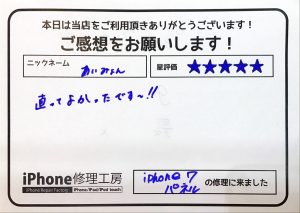 本日は当店をご利用頂きありがとうございます！
ご感想をお願いします！
ニックネーム
あいみょん
星評価 ★★★★★
直ってよかったです〜!!
iPhone修理工房
iPhone Repair Factory iPhone/iPad/iPod touch
iPhone 7
パネル
の修理に来ました